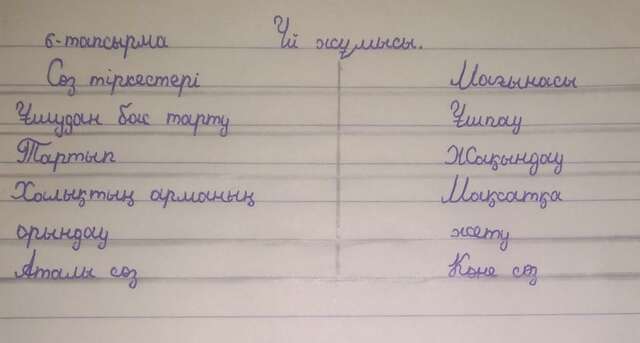 6-тапсырма Үй жұмысы.
Сөз тіркестері Мағынасы
Ұшудан бас тарту Ұшпау
Тартып Жақындау
Халықтың арманың Мақсатқа
орындау жету
Аталы сөз Көне сөз